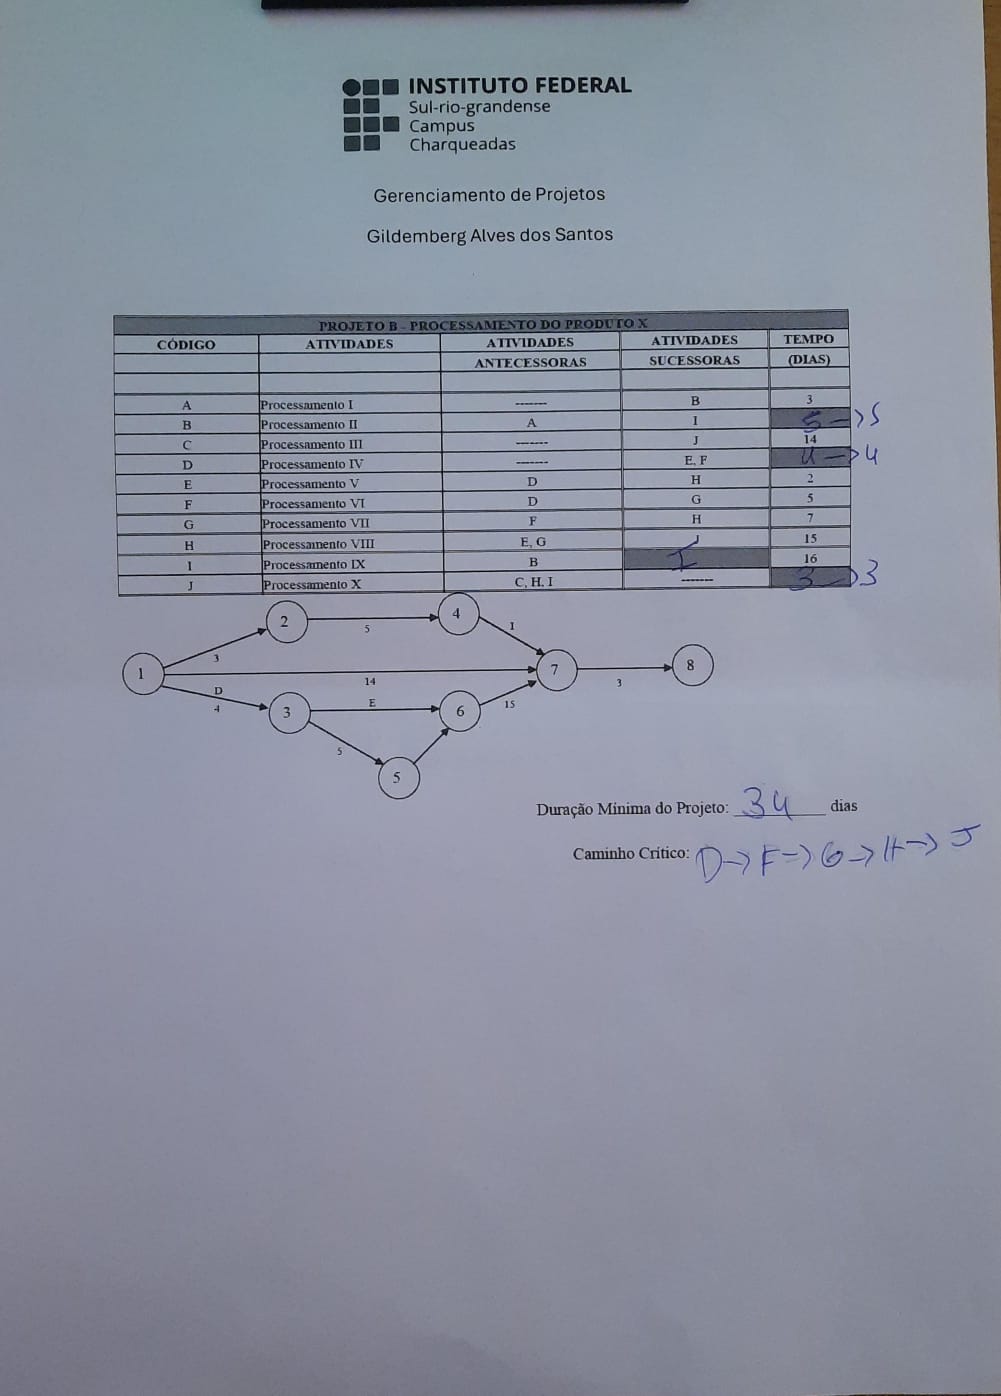 INSTITUTO FEDERAL
Sul-rio-grandense
Campus
Charqueadas
Gerenciamento de Projetos
Gildemberg Alves dos Santos
PROJETO B - PROCESSAMENTO DO PRODUTO X
CÓDIGO ATIVIDADES ATIVIDADES ATIVIDADES TEMPO
ANTECESSORAS SUCESSORAS (DIAS)
A Processamento I ------- B 3
B Processamento II A I 5 -> 5
C Processamento III ------- J 14
D Processamento IV ------- E, F 4 -> 4
E Processamento V D H 2
F Processamento VI D G 5
G Processamento VII F H 7
H Processamento VIII E, G J 15
I Processamento IX B I 16
J Processamento X C, H, I ------- 3 -> 3
2 4
5 I
3
1 7 8
14 3
D E
4 3 6 15
5
5
Duração Mínima do Projeto: 34 dias
Caminho Crítico: D -> F -> G -> H -> J